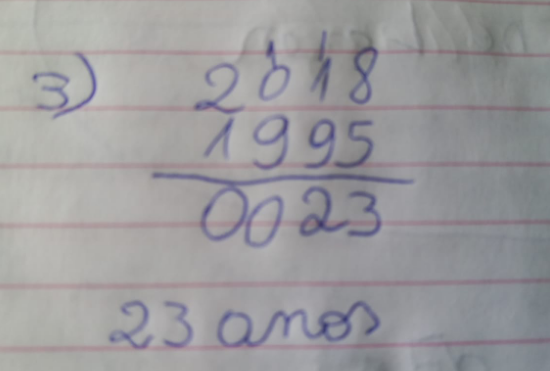 3) 2018
1995
0023
23 anos